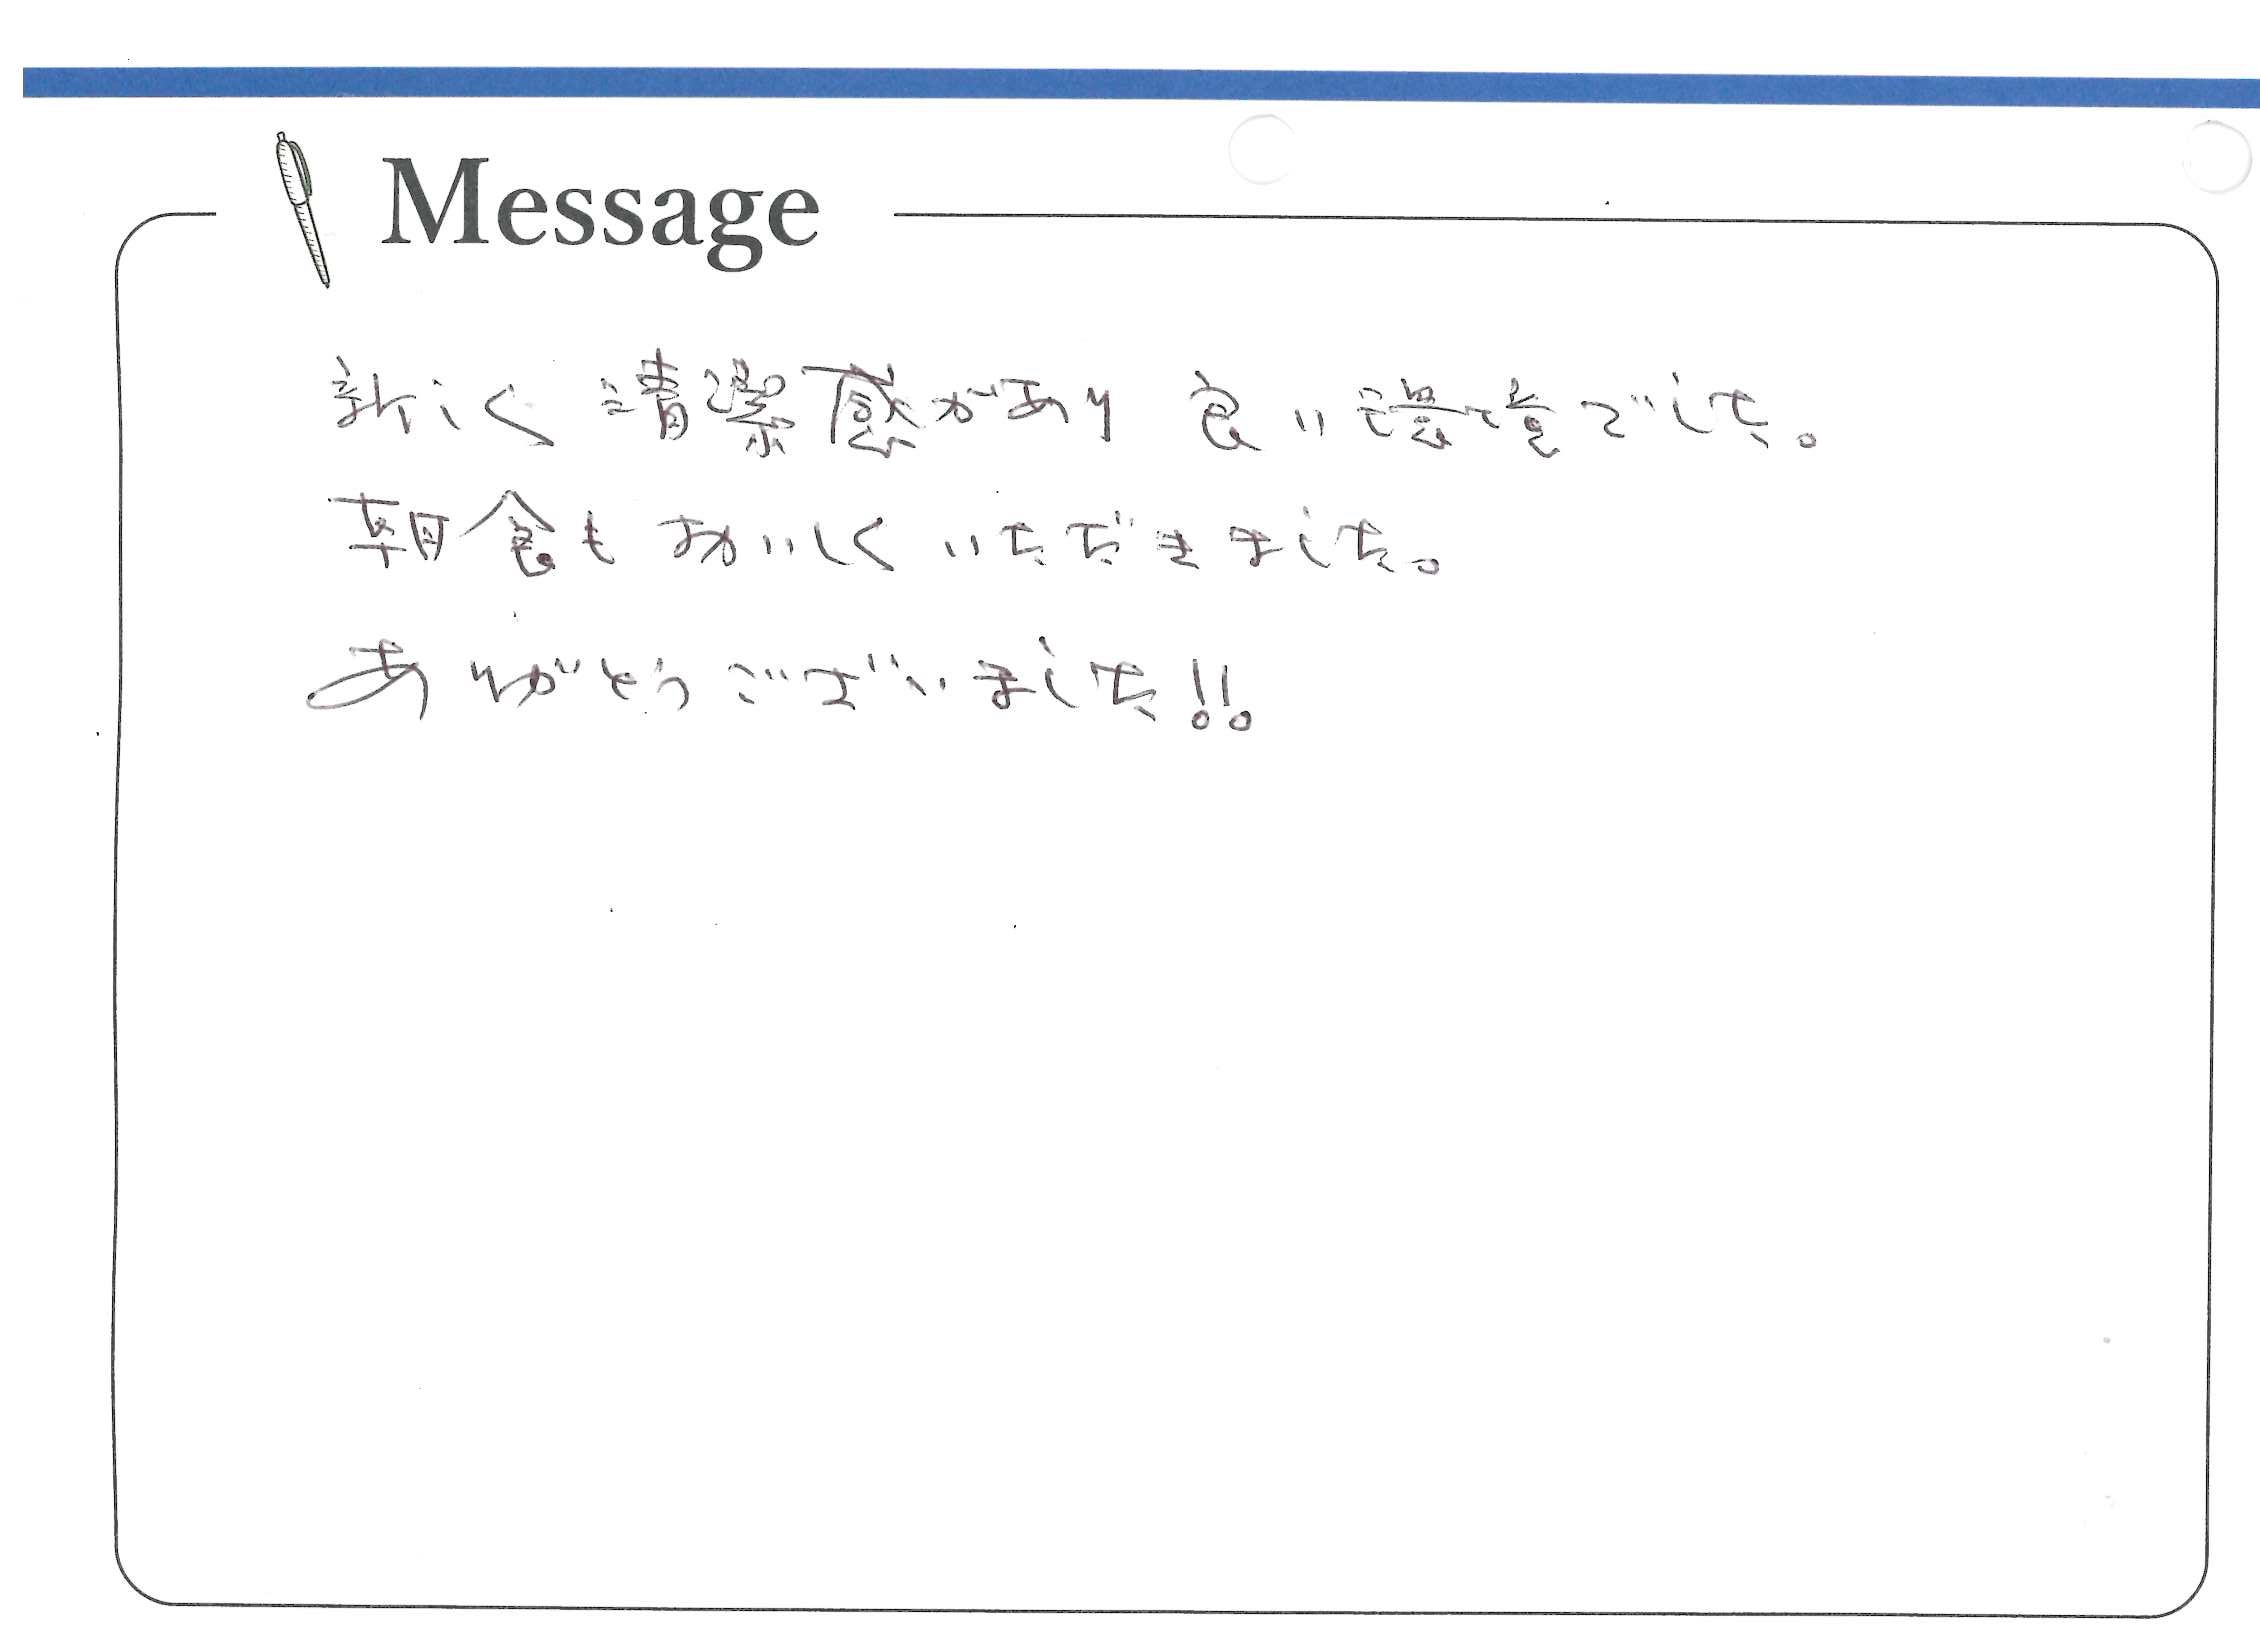 Message
新しく 清潔感があり 良い環境でした。
朝食も おいしく いただきました。
ありがとうございました!!